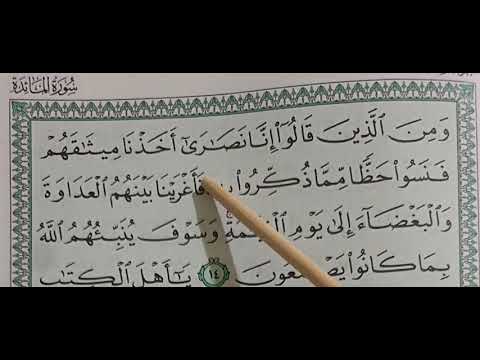 سُورَةُ المَائدَةِ
وَمِنَ ٱلَّذِينَ قَالُوٓاْ إِنَّا نَصَٰرَىٰٓ أَخَذۡنَا مِيثَٰقَهُمۡ
فَنَسُواْ حَظّٗا مِّمَّا ذُكِّرُواْ فَأَغۡرَيۡنَا بَيۡنَهُمُ ٱلۡعَدَاوَةَ
وَٱلۡبَغۡضَآءَ إِلَىٰ يَوۡمِ وَسَوۡفَ يُنَبِّئُهُمُ ٱللَّهُ
بِمَا كَانُواْ ١٤ يَٰٓأَهۡلَ ٱلۡكِتَٰبِ